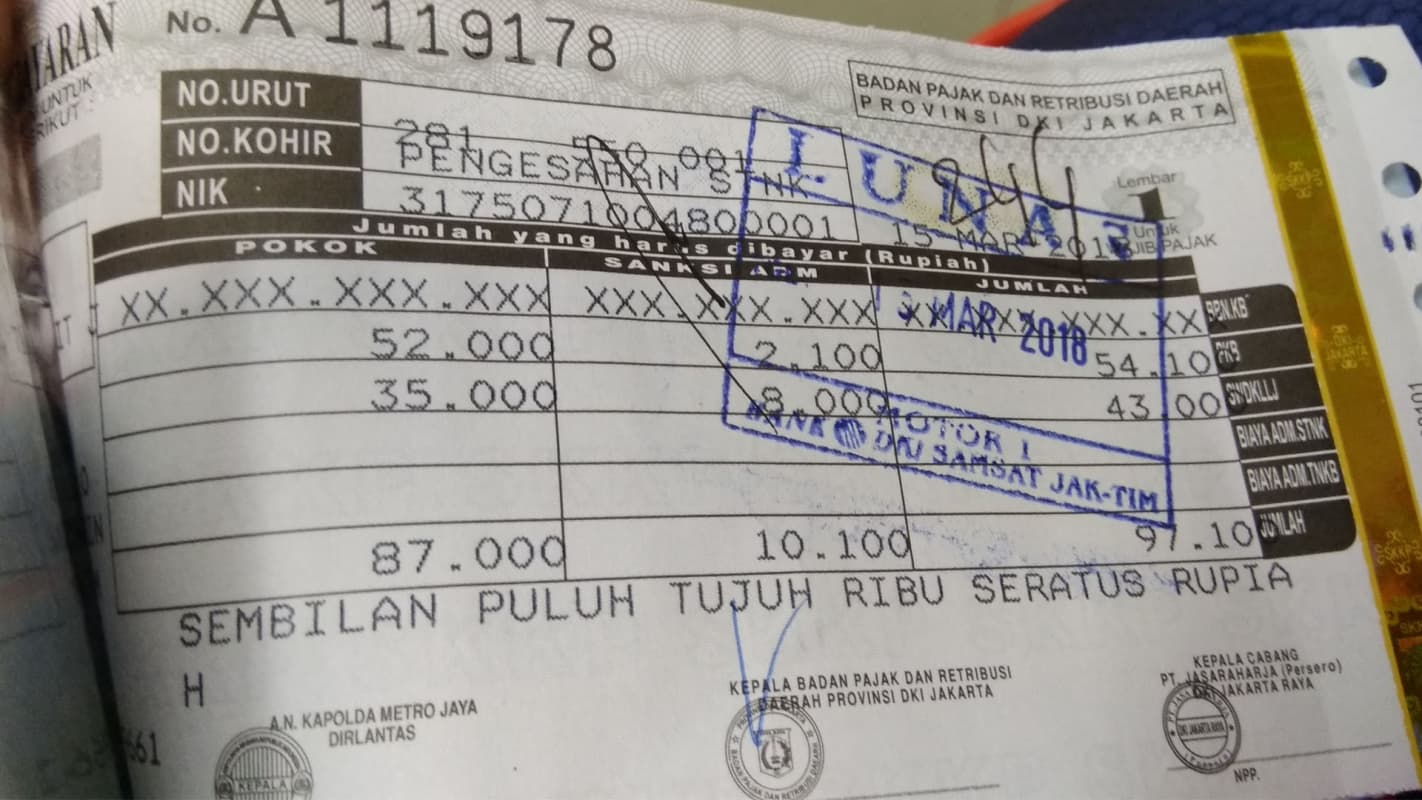 No. A 1119178
ARAN
UNTUK
RIKUT :
BADAN PAJAK DAN RETRIBUSI DAERAH
PROVINSI DKI JAKARTA
NO.URUT
NO.KOHIR 281 001
PENGESAHAN STNK
NIK 3175071004800001
LUNAS
15-MAR-2018
Lembar
1
Untuk
JIB PAJAK
Jumlah yang harus dibayar (Rupiah)
POKOK SANKSI ADM JUMLAH
XX.XXX.XXX.XXX XXX.XXX.XXX XX.XXX.XXX.XX BBN.KB
MAR 2018
52.000 2.100 54.10 PKB
35.000 8.000 43.00 SWDKLLJ
BIAYA ADM.STNK
BIAYA ADM.TNKB
MOTOR 1
BANK DKI SAMSAT JAK-TIM
87.000 10.100 97.10 JUMLAH
SEMBILAN PULUH TUJUH RIBU SERATUS RUPIA
H
A.N. KAPOLDA METRO JAYA
DIRLANTAS
KEPALA
KEPALA BADAN PAJAK DAN RETRIBUSI
DAERAH PROVINSI DKI JAKARTA
KEPALA CABANG
PT. JASARAHARJA (Persero)
DKI JAKARTA RAYA
DKI JAKARTA RAYA
NPP.
661